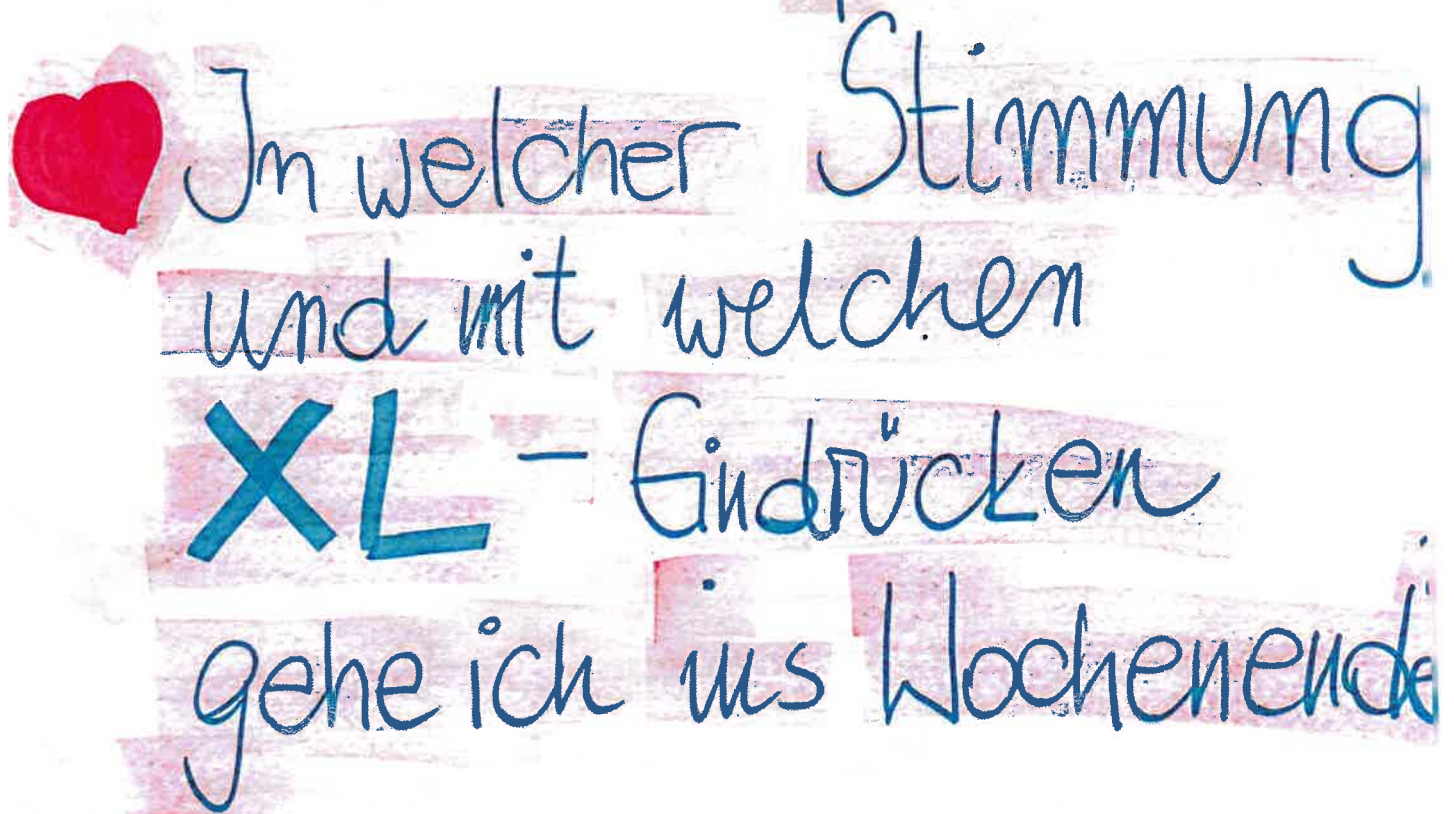 In welcher Stimmung
und mit welchen
XL - Eindrücken
gehe ich ins Wochenende